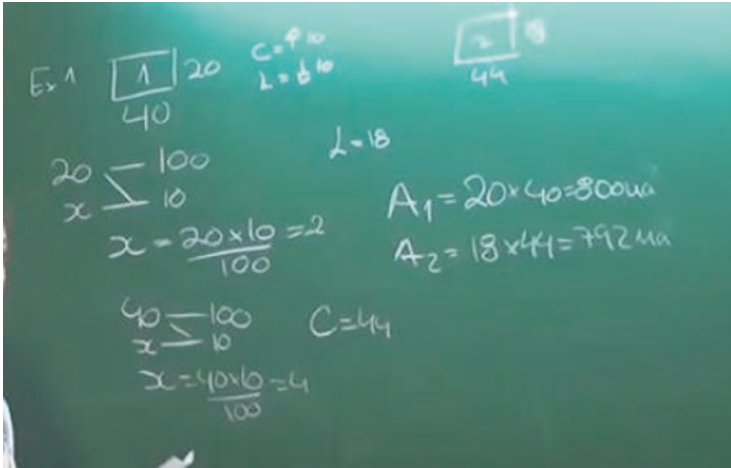 Ex 1 1 20
40
C = ↑ 10
L = ↓ 10
2 18
44
20 — 100
x — 10
x = 20×10 = 2
100
L = 18
A₁ = 20×40 = 800ua
A₂ = 18×44 = 792ua
40 — 100
x — 10
x = 40×10 = 4
100
C = 44